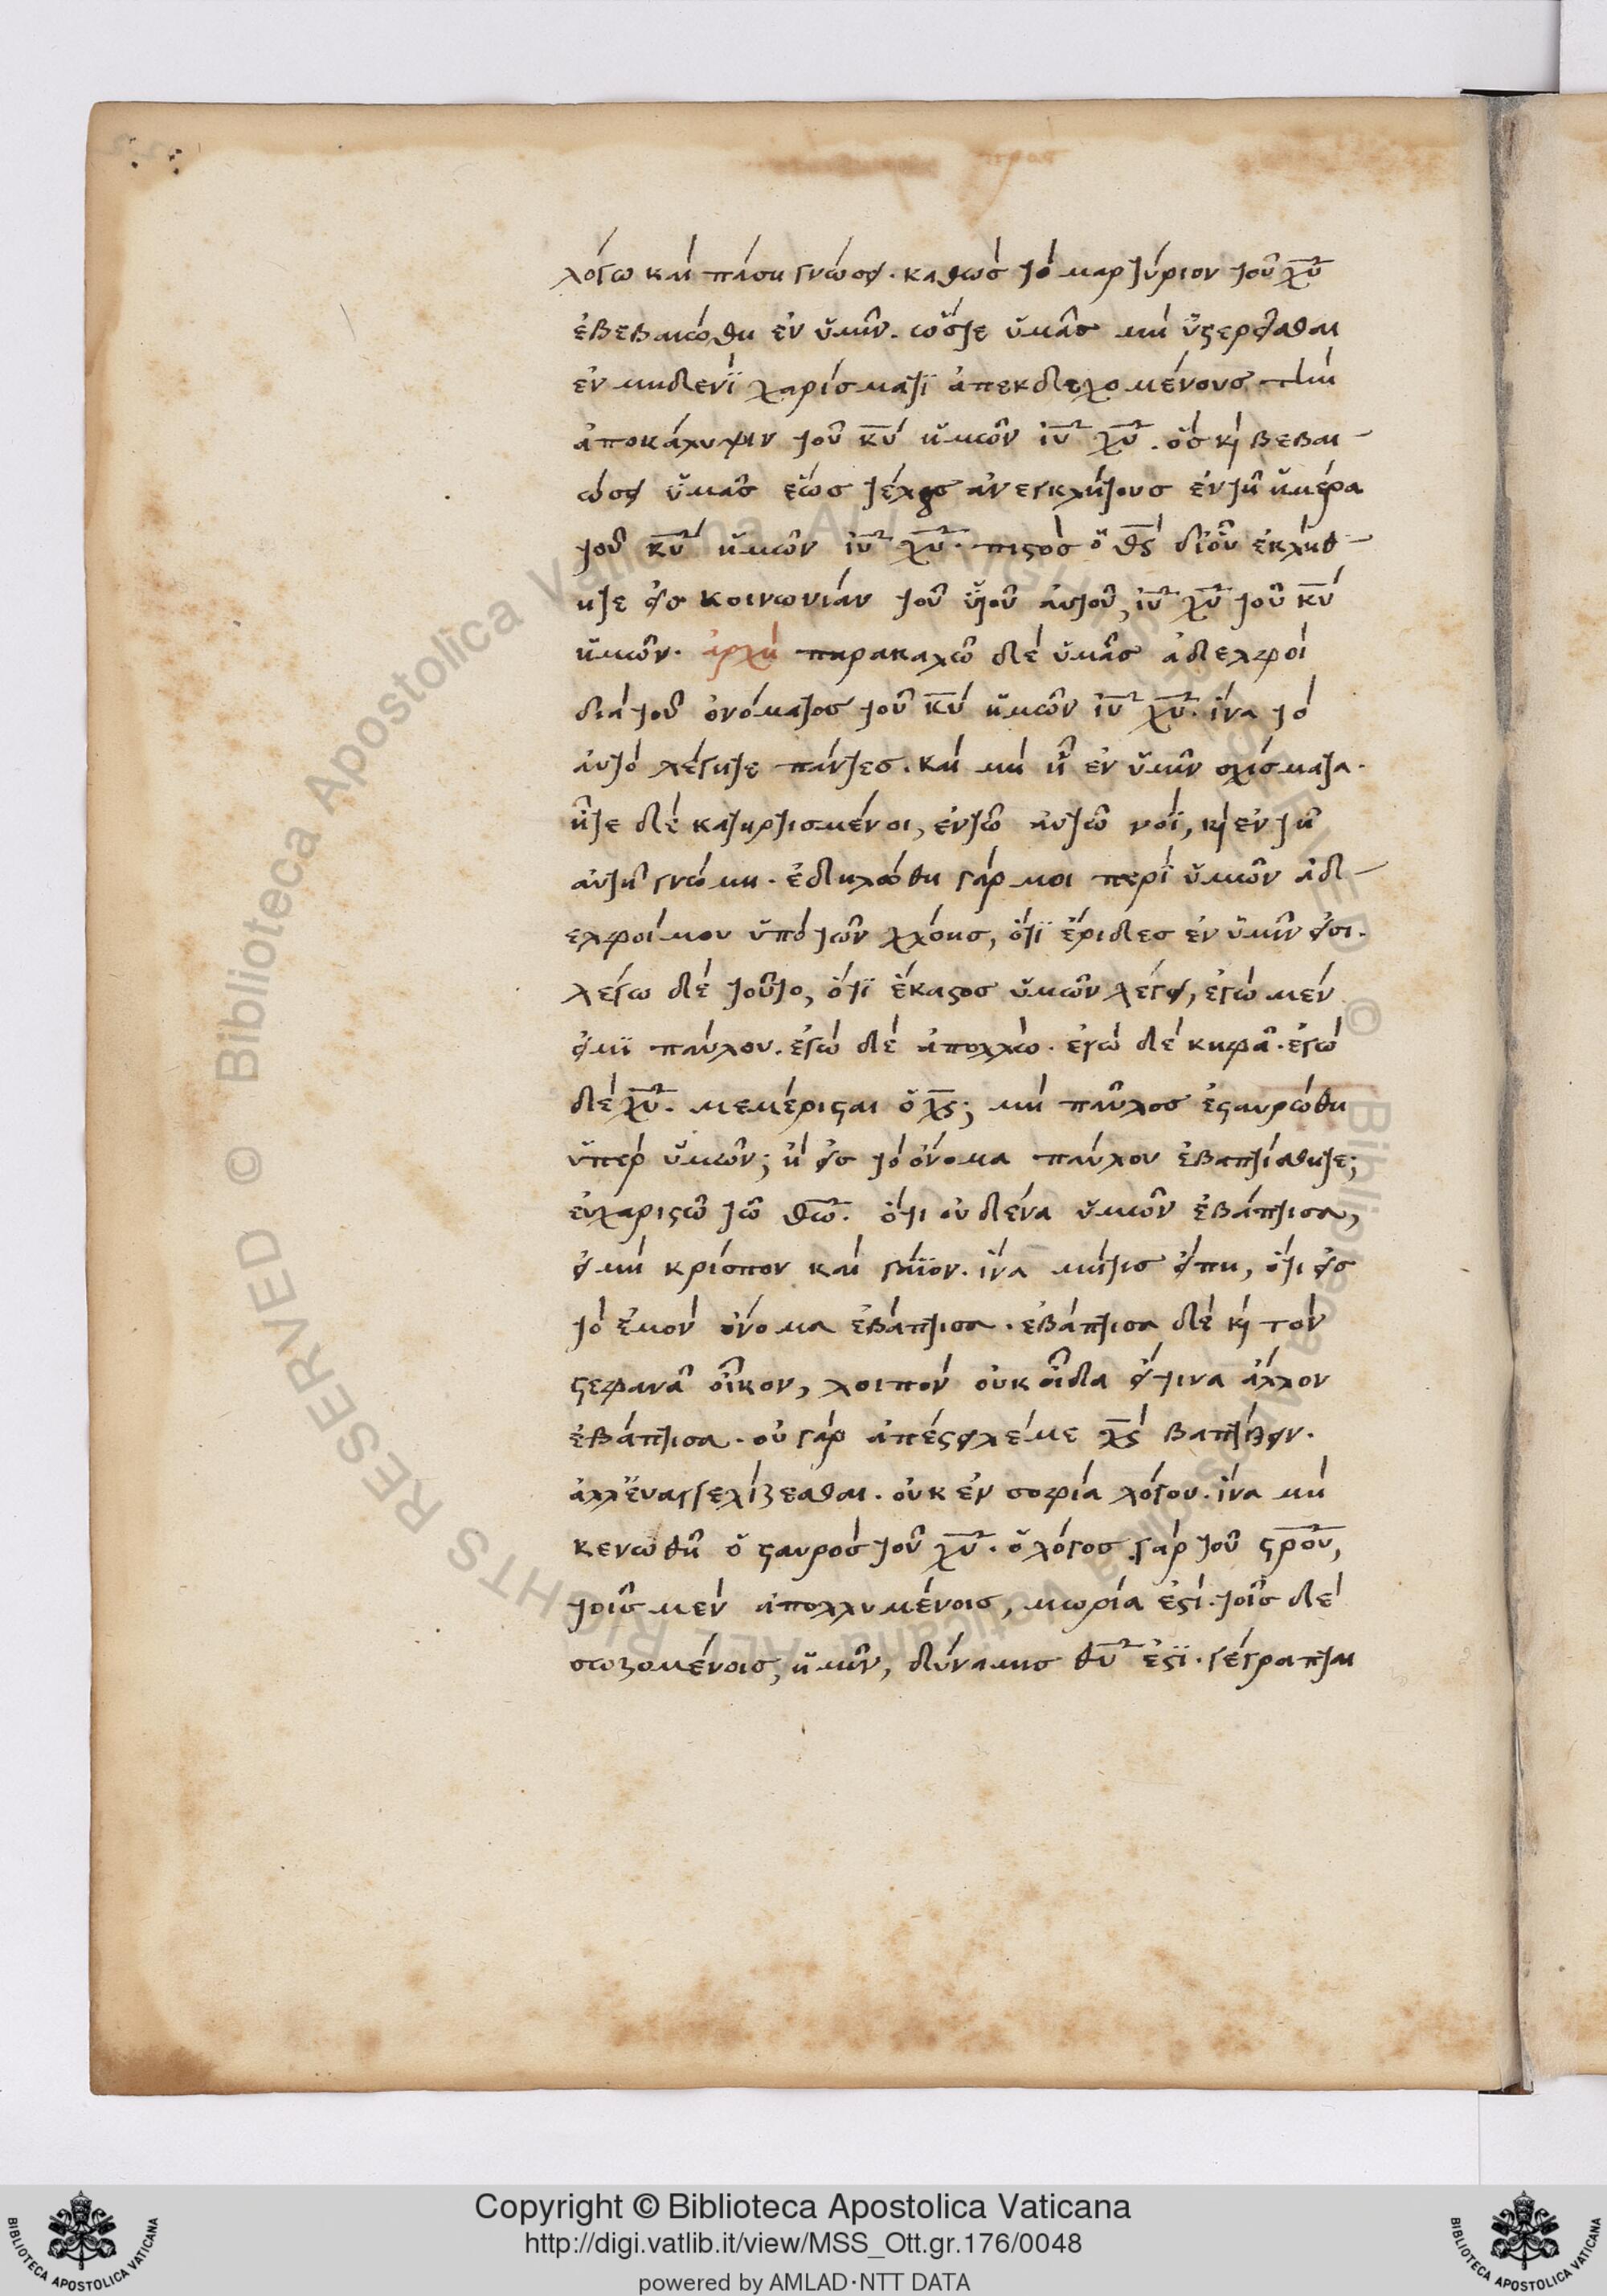 λόγω καὶ πάση γνώσει. καθὼς τὸ μαρτύριον τοῦ χυ
ἐβεβαιώθη ἐν ὑμῖν. ὥστε ὑμᾶς μὴ ὑστερεῖσθαι
ἐν μηδενὶ χαρίσματι ἀπεκδεχομένους τὴν
ἀποκάλυψιν τοῦ κυ ἡμῶν ιυ χυ. ὃς κὶ βεβαι
ώσει ὑμᾶς ἕως τέλους ἀνεγκλήτους ἐν τῆ ἡμέρα
τοῦ κυ ἡμῶν ιυ χυ. πιστὸς ὁ θς δι οὗ ἐκλήθ
ητε εἰς κοινωνίαν τοῦ υἱοῦ αὐτοῦ, ιυ χυ τοῦ κυ
ἡμῶν. ἀρχὴ παρακαλῶ δὲ ὑμᾶς ἀδελφοὶ
διὰ τοῦ ὀνόματος τοῦ κυ ἡμῶν ιυ χυ. ἵνα τὸ
αὐτὸ λέγητε πάντες. καὶ μὴ ἦ ἐν ὑμῖν σχίσματα.
ἦτε δὲ κατηρτισμένοι, ἐν τῶ αὐτῶ νοῒ, κὶ ἐν τῆ
αὐτῆ γνώμη. ἐδηλώθη γάρ μοι περὶ ὑμῶν ἀδ
ελφοί μου ὑπὸ τῶν χλόης, ὅτι ἔριδες ἐν ὑμῖν εἰσι.
λέγω δὲ τοῦτο, ὅτι ἕκαστος ὑμῶν λέγει, ἐγὼ μέν
εἰμι παύλου. ἐγὼ δὲ ἀπολλώ. ἐγὼ δὲ κηφᾶ. ἐγὼ
δὲ χυ. μεμέρισται ὁ χς; μὴ παῦλος ἐσταυρώθη
ὑπὲρ ὑμῶν; ἢ εἰς τὸ ὄνομα παύλου ἐβαπτίσθητε;
εὐχαριστῶ τῶ θω. ὅτι οὐδένα ὑμῶν ἐβάπτισα,
εἰ μὴ κρίσπον καὶ γάϊον. ἵνα μή τις εἴπη, ὅτι εἰς
τὸ ἐμὸν ὄνομα ἐβάπτισα. ἐβάπτισα δὲ κὶ τὸν
στεφανᾶ οἶκον, λοιπὸν οὐκ οἶδα εἴ τινα ἄλλον
ἐβάπτισα. οὐ γὰρ ἀπέστειλέ με χς βαπτίζειν.
ἀλλ' εὐαγγελίζεσθαι. οὐκ ἐν σοφία λόγου. ἵνα μὴ
κενωθῆ ὁ σταυρὸς τοῦ χυ. ὁ λόγος γὰρ τοῦ στρου,
τοῖς μὲν ἀπολλυμένοις, μωρία ἐστί. τοῖς δὲ
σωζομένοις, ἡμῖν, δύναμις θυ ἐστι. γέγραπται
Copyright © Biblioteca Apostolica Vaticana
http://digi.vatlib.it/view/MSS_Ott.gr.176/0048
powered by AMLAD·NTT DATA
© Biblioteca Apostolica Vaticana ALL RIGHTS RESERVED
© Biblioteca Apostolica Vaticana ALL RIGHTS RESERVED
BIBLIOTECA APOSTOLICA VATICANA
BIBLIOTECA APOSTOLICA VATICANA